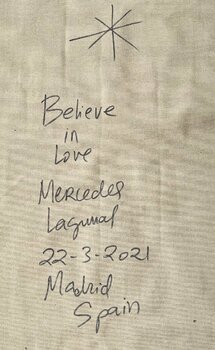 Believe
in
Love
Mercedes
Lagunal
22-3-2021
Madrid
Spain